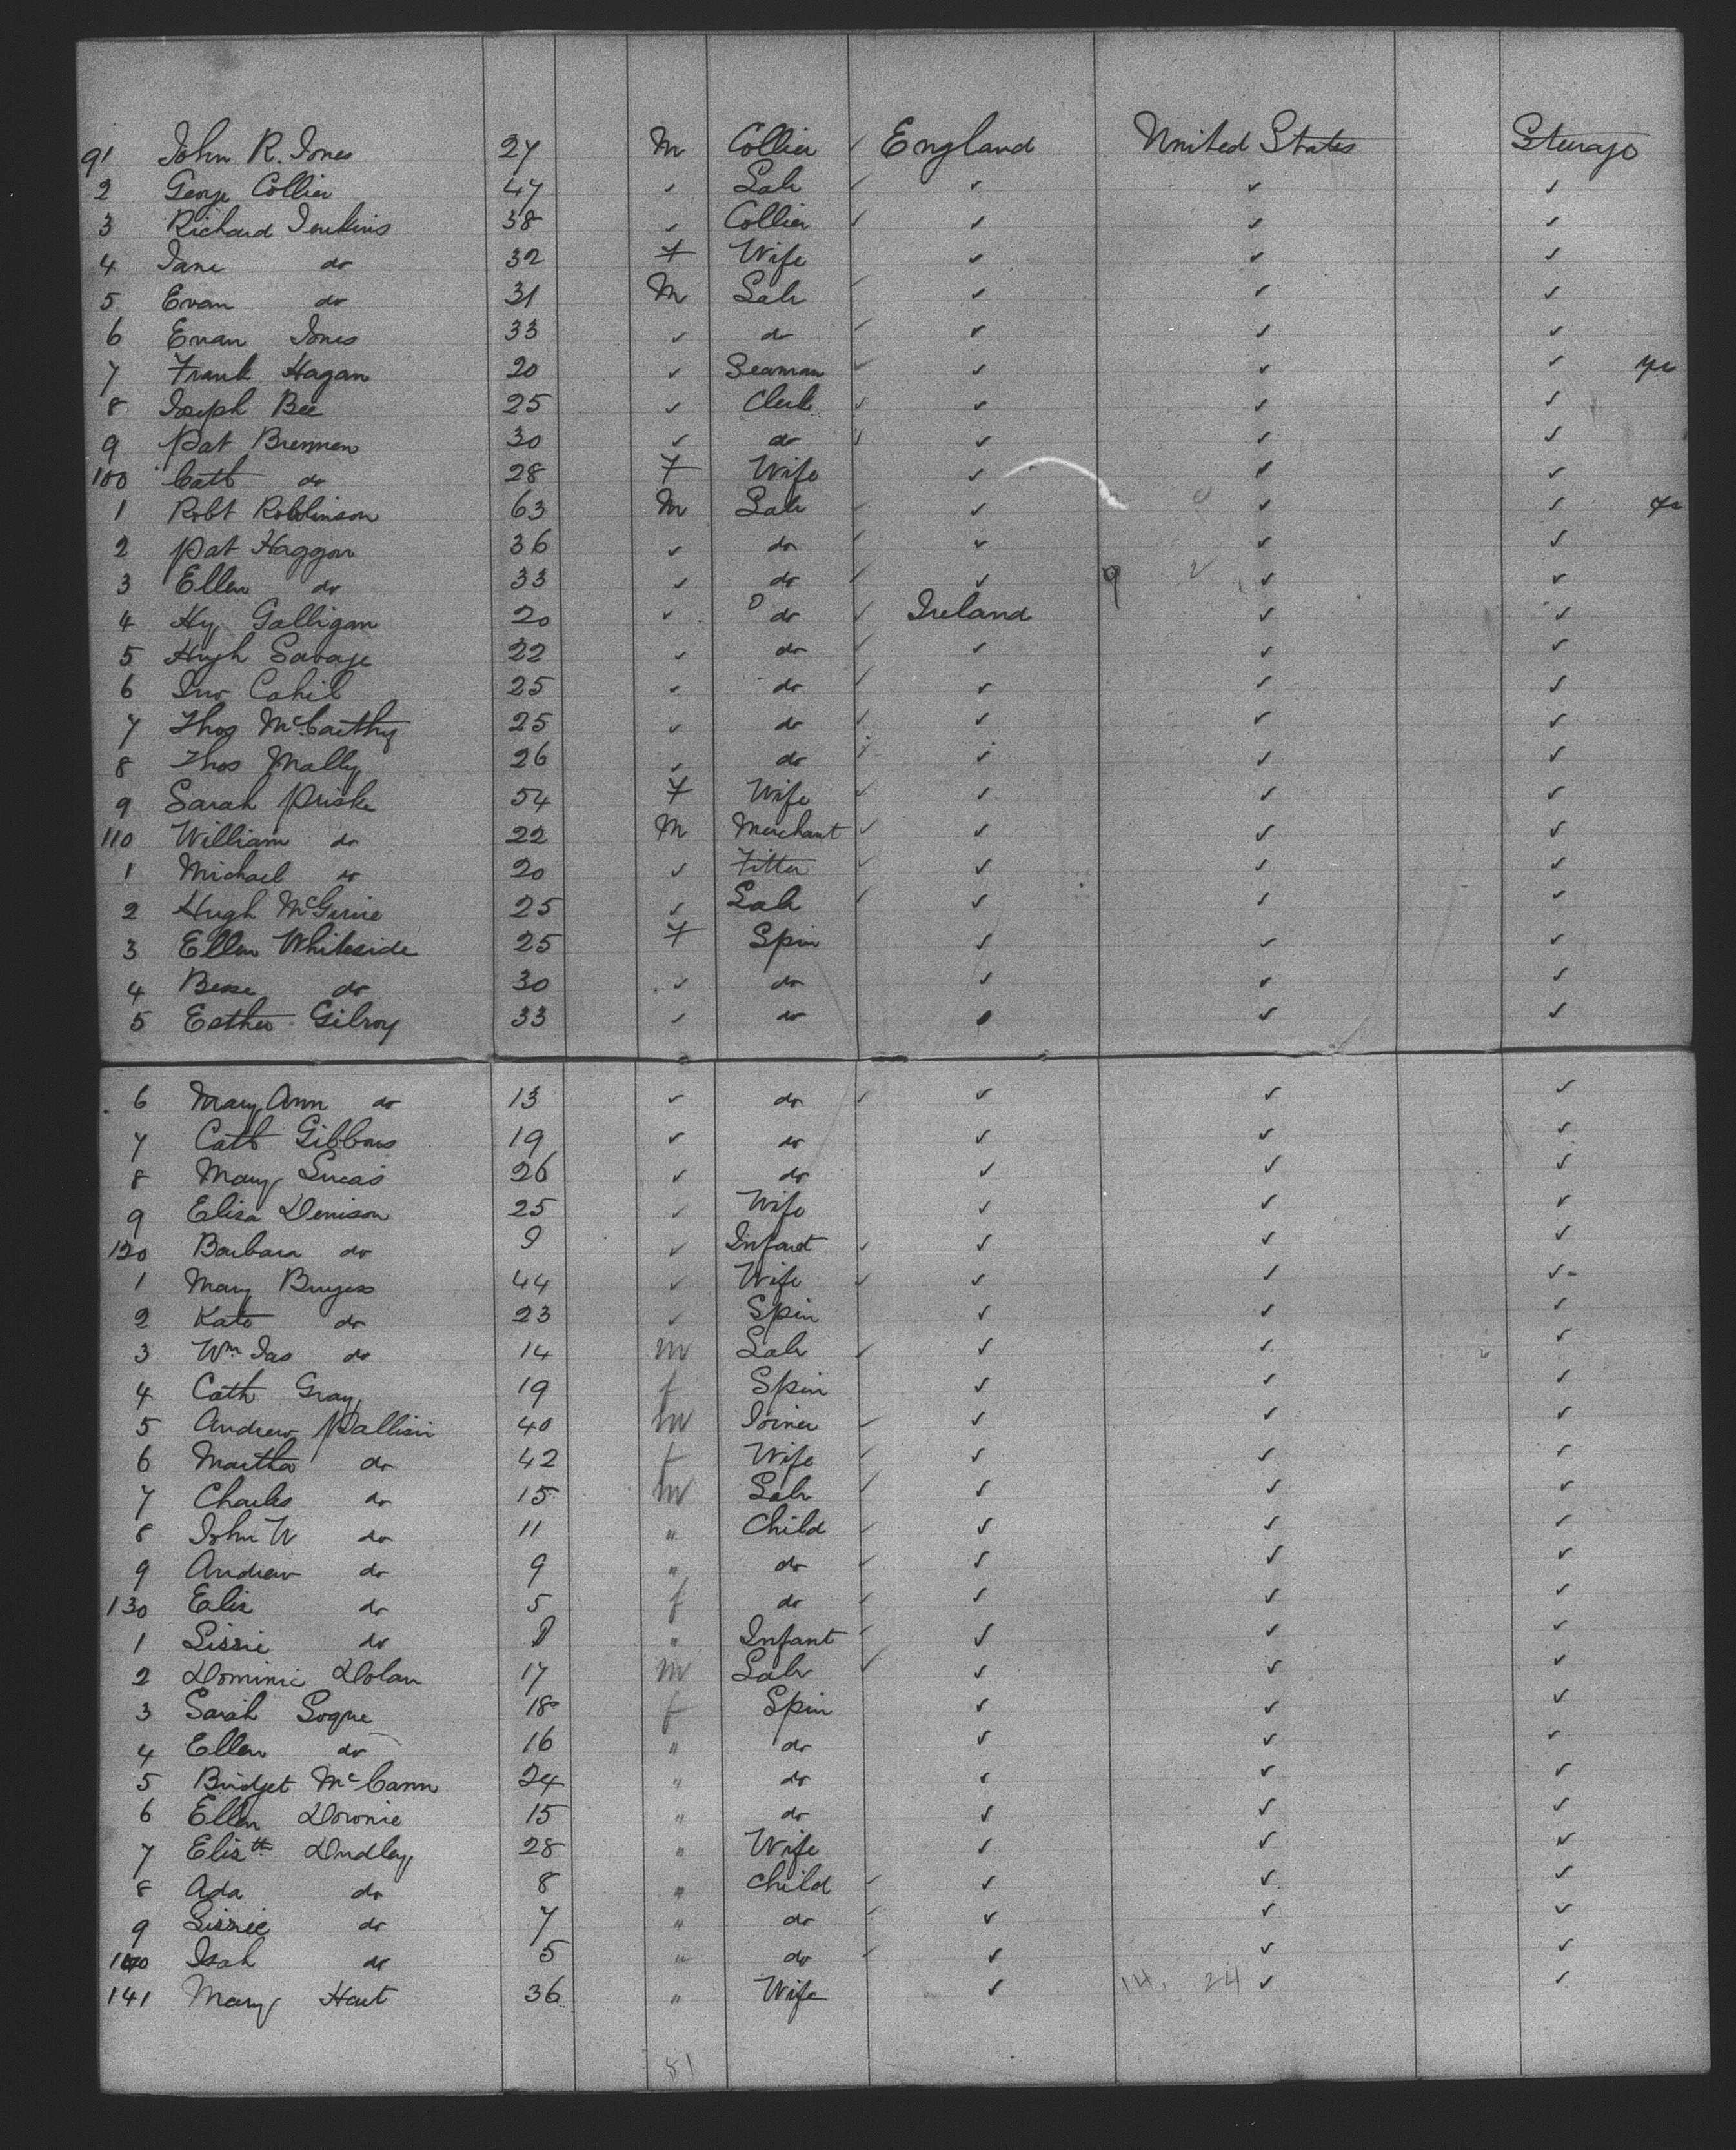 91 John R. Jones 27 M Collier ✓ England United States Steerage
2 George Collier 47 ✓ Lab ✓ ✓ ✓ ✓
3 Richard Jenkins 38 ✓ Collier ✓ ✓ ✓ ✓
4 Jane do 32 F Wife ✓ ✓ ✓
5 Evan do 31 M Lab ✓ ✓ ✓ ✓
6 Evan Jones 33 ✓ do ✓ ✓ ✓ ✓
7 Frank Hagan 20 ✓ Seaman ✓ ✓ ✓ ✓
8 Joseph Bee 25 ✓ Clerk ✓ ✓ ✓ ✓
9 Pat Brennen 30 ✓ do ✓ ✓ ✓ ✓
100 Cath do 28 F Wife ✓ ✓ ✓
1 Robt Rowlinson 63 M Lab ✓ ✓ ✓ ✓
2 Pat Haggon 36 ✓ do ✓ ✓ ✓ ✓
3 Ellen do 33 ✓ do ✓ ✓ 9 ✓ ✓
4 Hy Galligan 20 ✓ do ✓ Ireland ✓ ✓
5 Hugh Savage 22 ✓ do ✓ ✓ ✓ ✓
6 Jno Cahil 25 ✓ do ✓ ✓ ✓ ✓
7 Thos McCarthy 25 ✓ do ✓ ✓ ✓ ✓
8 Thos Mally 26 ✓ do ✓ ✓ ✓ ✓
9 Sarah Priske 54 F Wife ✓ ✓ ✓ ✓
110 William do 22 M Merchant ✓ ✓ ✓ ✓
1 Michael do 20 ✓ Fitter ✓ ✓ ✓ ✓
2 Hugh McGuire 25 ✓ Lab ✓ ✓ ✓ ✓
3 Ellen Whiteside 25 F Spin ✓ ✓ ✓
4 Besse do 30 ✓ do ✓ ✓ ✓
5 Esther Gilroy 33 ✓ do ✓ ✓
6 Mary Ann do 13 ✓ do ✓ ✓ ✓ ✓
7 Cath Gibbons 19 ✓ do ✓ ✓ ✓
8 Mary Lucas 26 ✓ do ✓ ✓ ✓
9 Eliza Denison 25 ✓ Wife ✓ ✓ ✓
120 Barbara do ✓ Infant ✓ ✓ ✓ ✓
1 Mary Burgess 44 ✓ Wife ✓ ✓ ✓ ✓
2 Kate do 23 ✓ Spin ✓ ✓ ✓
3 Wm Jas do 14 m Lab ✓ ✓ ✓ ✓
4 Cath Gray 19 f Spin ✓ ✓ ✓
5 Andrew Pallisir 40 m Joiner ✓ ✓ ✓ ✓
6 Martha do 42 f Wife ✓ ✓ ✓ ✓
7 Charles do 15 m Lab ✓ ✓ ✓ ✓
8 John W do 11 " Child ✓ ✓ ✓ ✓
9 Andrew do 9 " do ✓ ✓ ✓ ✓
130 Eliz do 5 f do ✓ ✓ ✓ ✓
1 Lizzie do " Infant ✓ ✓ ✓ ✓
2 Dominic Dolan 17 m Lab ✓ ✓ ✓ ✓
3 Sarah Logue 18 f Spin ✓ ✓ ✓
4 Ellen do 16 " do ✓ ✓ ✓
5 Bridget McCann 24 " do ✓ ✓ ✓
6 Ellen Downie 15 " do ✓ ✓ ✓
7 Elizth Dudley 28 " Wife ✓ ✓ ✓
8 Ada do 8 " Child ✓ ✓ ✓ ✓
9 Lizzie do 7 " do ✓ ✓ ✓ ✓
140 Isah do 5 " do ✓ ✓ ✓ ✓
141 Mary Hart 36 " Wife ✓ 14. 24 ✓ ✓
51